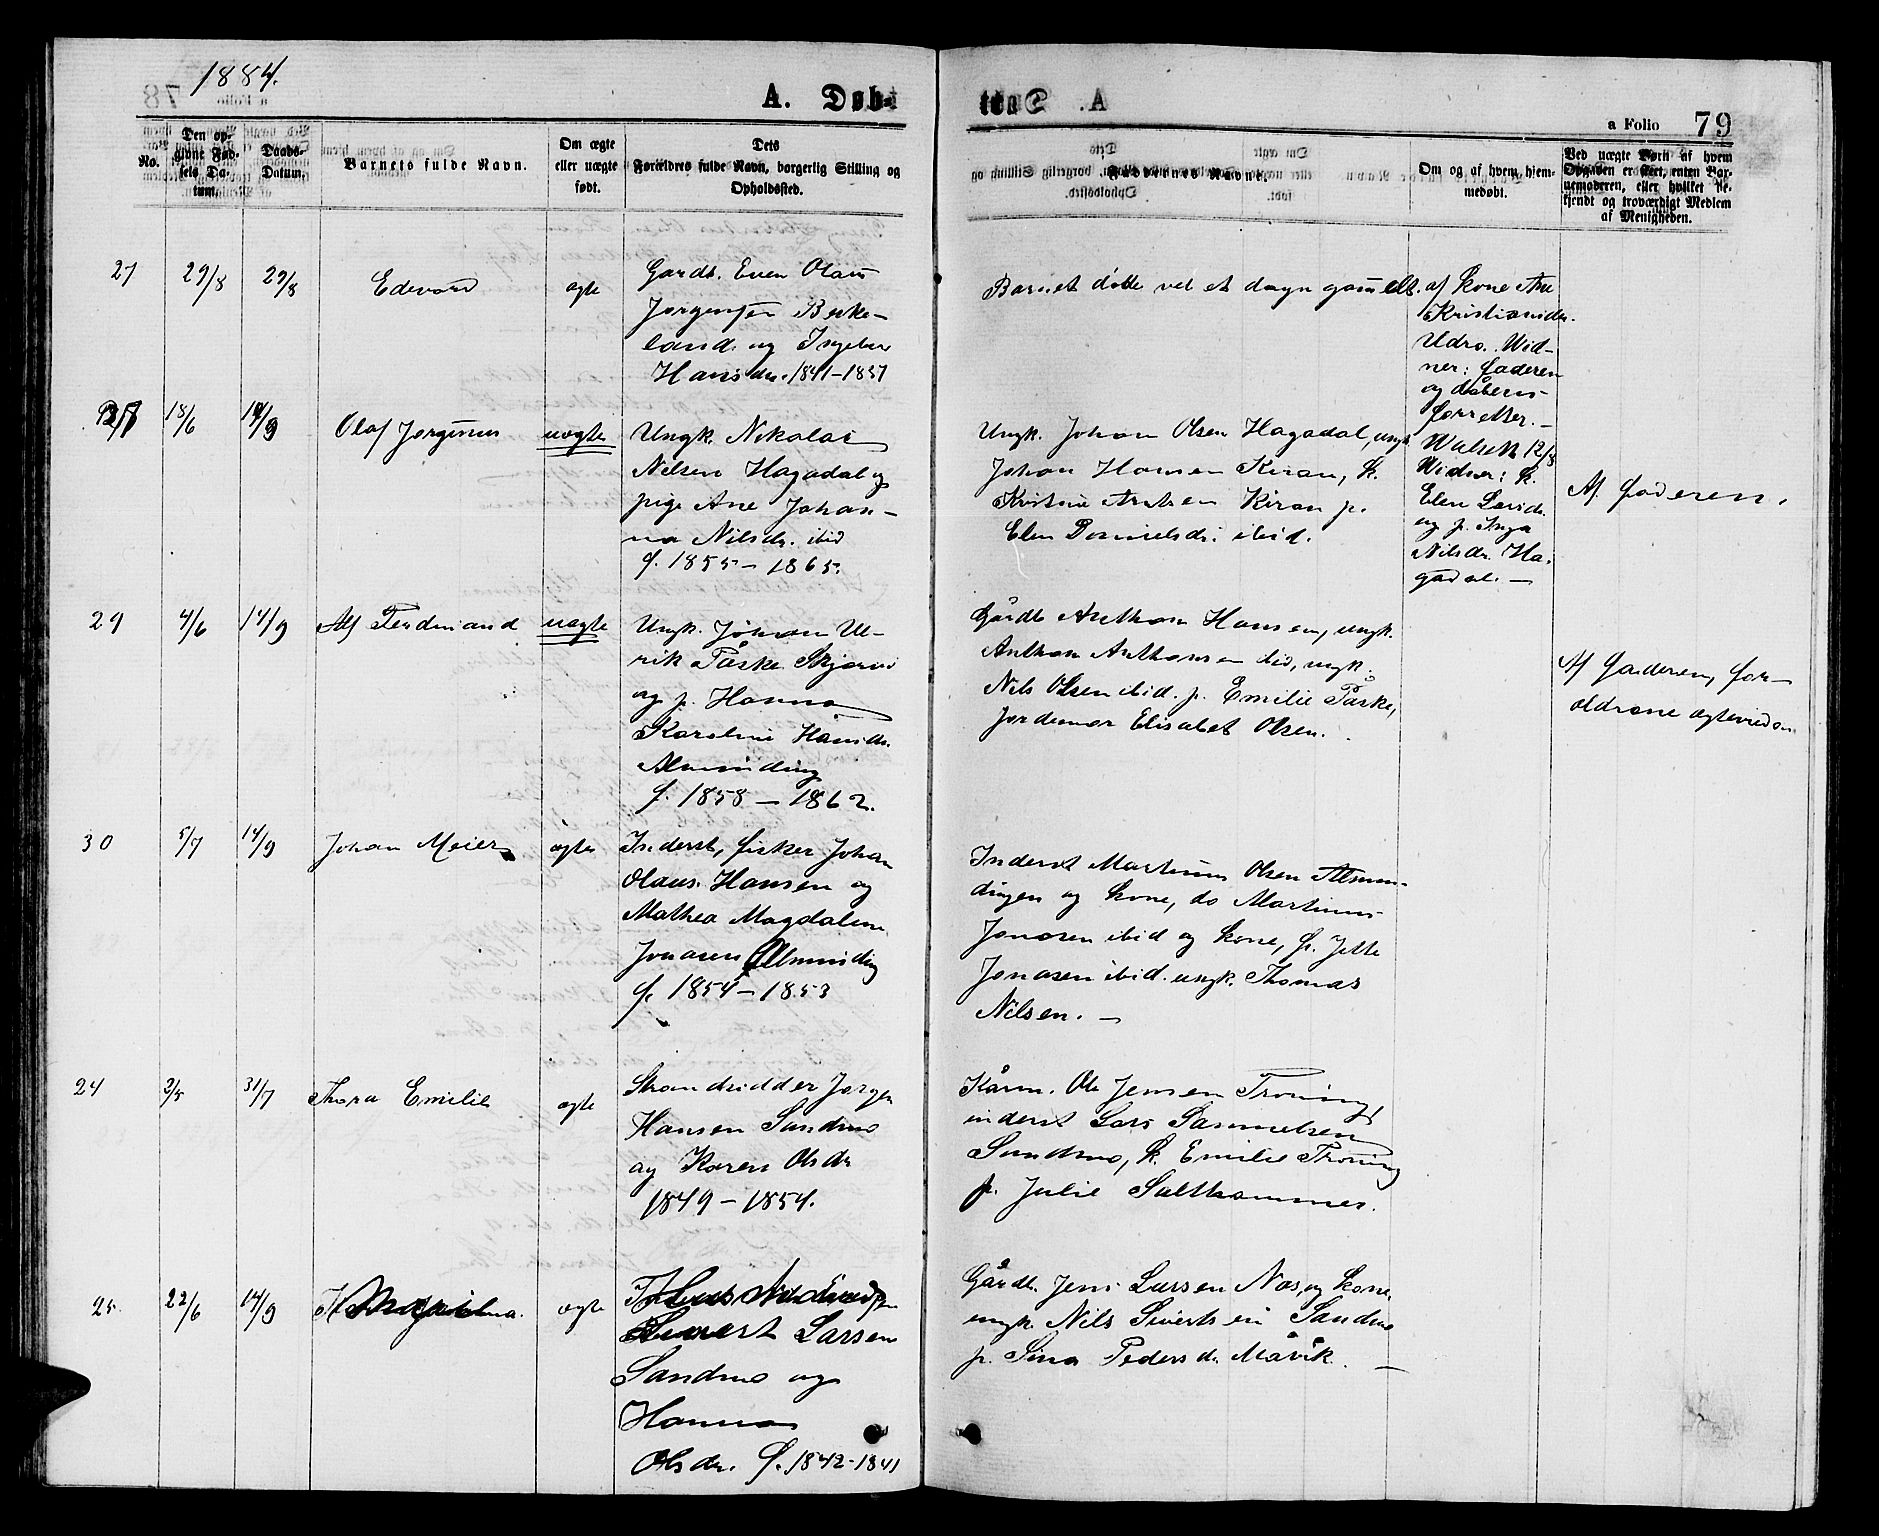 1884.
A. Døb-
a Folio 79
No.
Den op-
givne Fød-
sels Da-
tum.
Daabs-
Datum.
Barnets fulde Navn.
Om ægte
eller uægte
født.
Dets
Forældres fulde Navn, borgerlig Stilling og
Opholdssted.
Faddernes Navne.
Om og af hvem hjem-
medøbt.
Ved uægte Børn af hvem
Opgaven er skeet, enten Bar-
nemoderen, eller hvilket be-
kjendt og troværdigt Medlem
af Menigheden.
27 29/8 29/8 Edevard ægte
Gardb. Even Olaus
Jørgensen Berke-
land og Ingebor
Hansdr. 1841-1837
Barnet døde ved et døgn gammelt.
af kone Ane
Kristiansdr.
Udro. Wid-
ner: faderen
og dåbens-
forretter.-
18/6 14/9 Olaf Jørginus uægte
Ungk. Nikolai
Nilsen Hagadal og
pige Ane Johan-
na Nilsdr. ibid
f. 1855 - 1865.
Ungk. Johan Olsen Hagadal, ungk.
Johan Hansen Kiran, k.
Kristine Kiran p.
Elen Danielsdr. ibid.
12/8
Widner: k.
Elen Larsdr.
og p. Inga
Nilsdr. Ha-
gadal. -
Af faderen.
29 4/6 14/9 Alf Ferdinand uægte
Ungk. Johan Ul-
rik Påske Skjærvø
og p. Hanna
Karoline Hansdr.
Alminding
f. 1858 - 1862.
Gårdb Anthon Hansen, ungk.
Anthon Anthonsen ibid, ungk.
Nils Olsen ibid. p. Emilie Påske,
Jordemor Elisabet Olsen.
Af faderen, for-
ældrene ægteviede
30 5/7 14/9 Johan Meier ægte
Inderst, fisker Johan
Olaus Hansen og
Mathea Magdalena
Jonasen Allminding
f. 1854 - 1853
Inderst Martinus Olsen Almin-
dingen og kone, do Martinus
Jonasen ibid og kone, p. Jette
Jonasen ibid. ungk. Thomas
Nilsen. -
24 2/5 31/7 Thora Emilie ægte
Strandsidder Jørgen
Hansen Sandmo
og Karen Olsdr
1849 - 1854.
Kårm. Ole Jensen Trøning,
inderst Lars Samuelsen
Sandmo, k. Emilie Trøning
p. Julie Salthammer.
25. 22/6 14/9 ægte
Larsen
Sandmo og
Hanna
Olsdr. f. 1842-1841
Gårdb. Jens Larsen Næs, og kone,
ungk. Nils Sivertsen Sandmo
p. Sina Pedersdr. Måvik. -